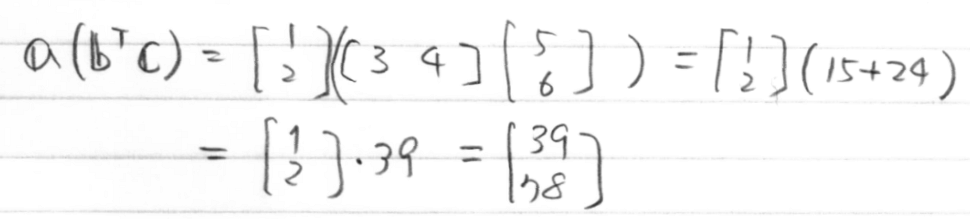 a(bᵀc) = [1 2]([3 4][5 6]) = [1 2](15+24)
= [1 2]·39 = [39 78]